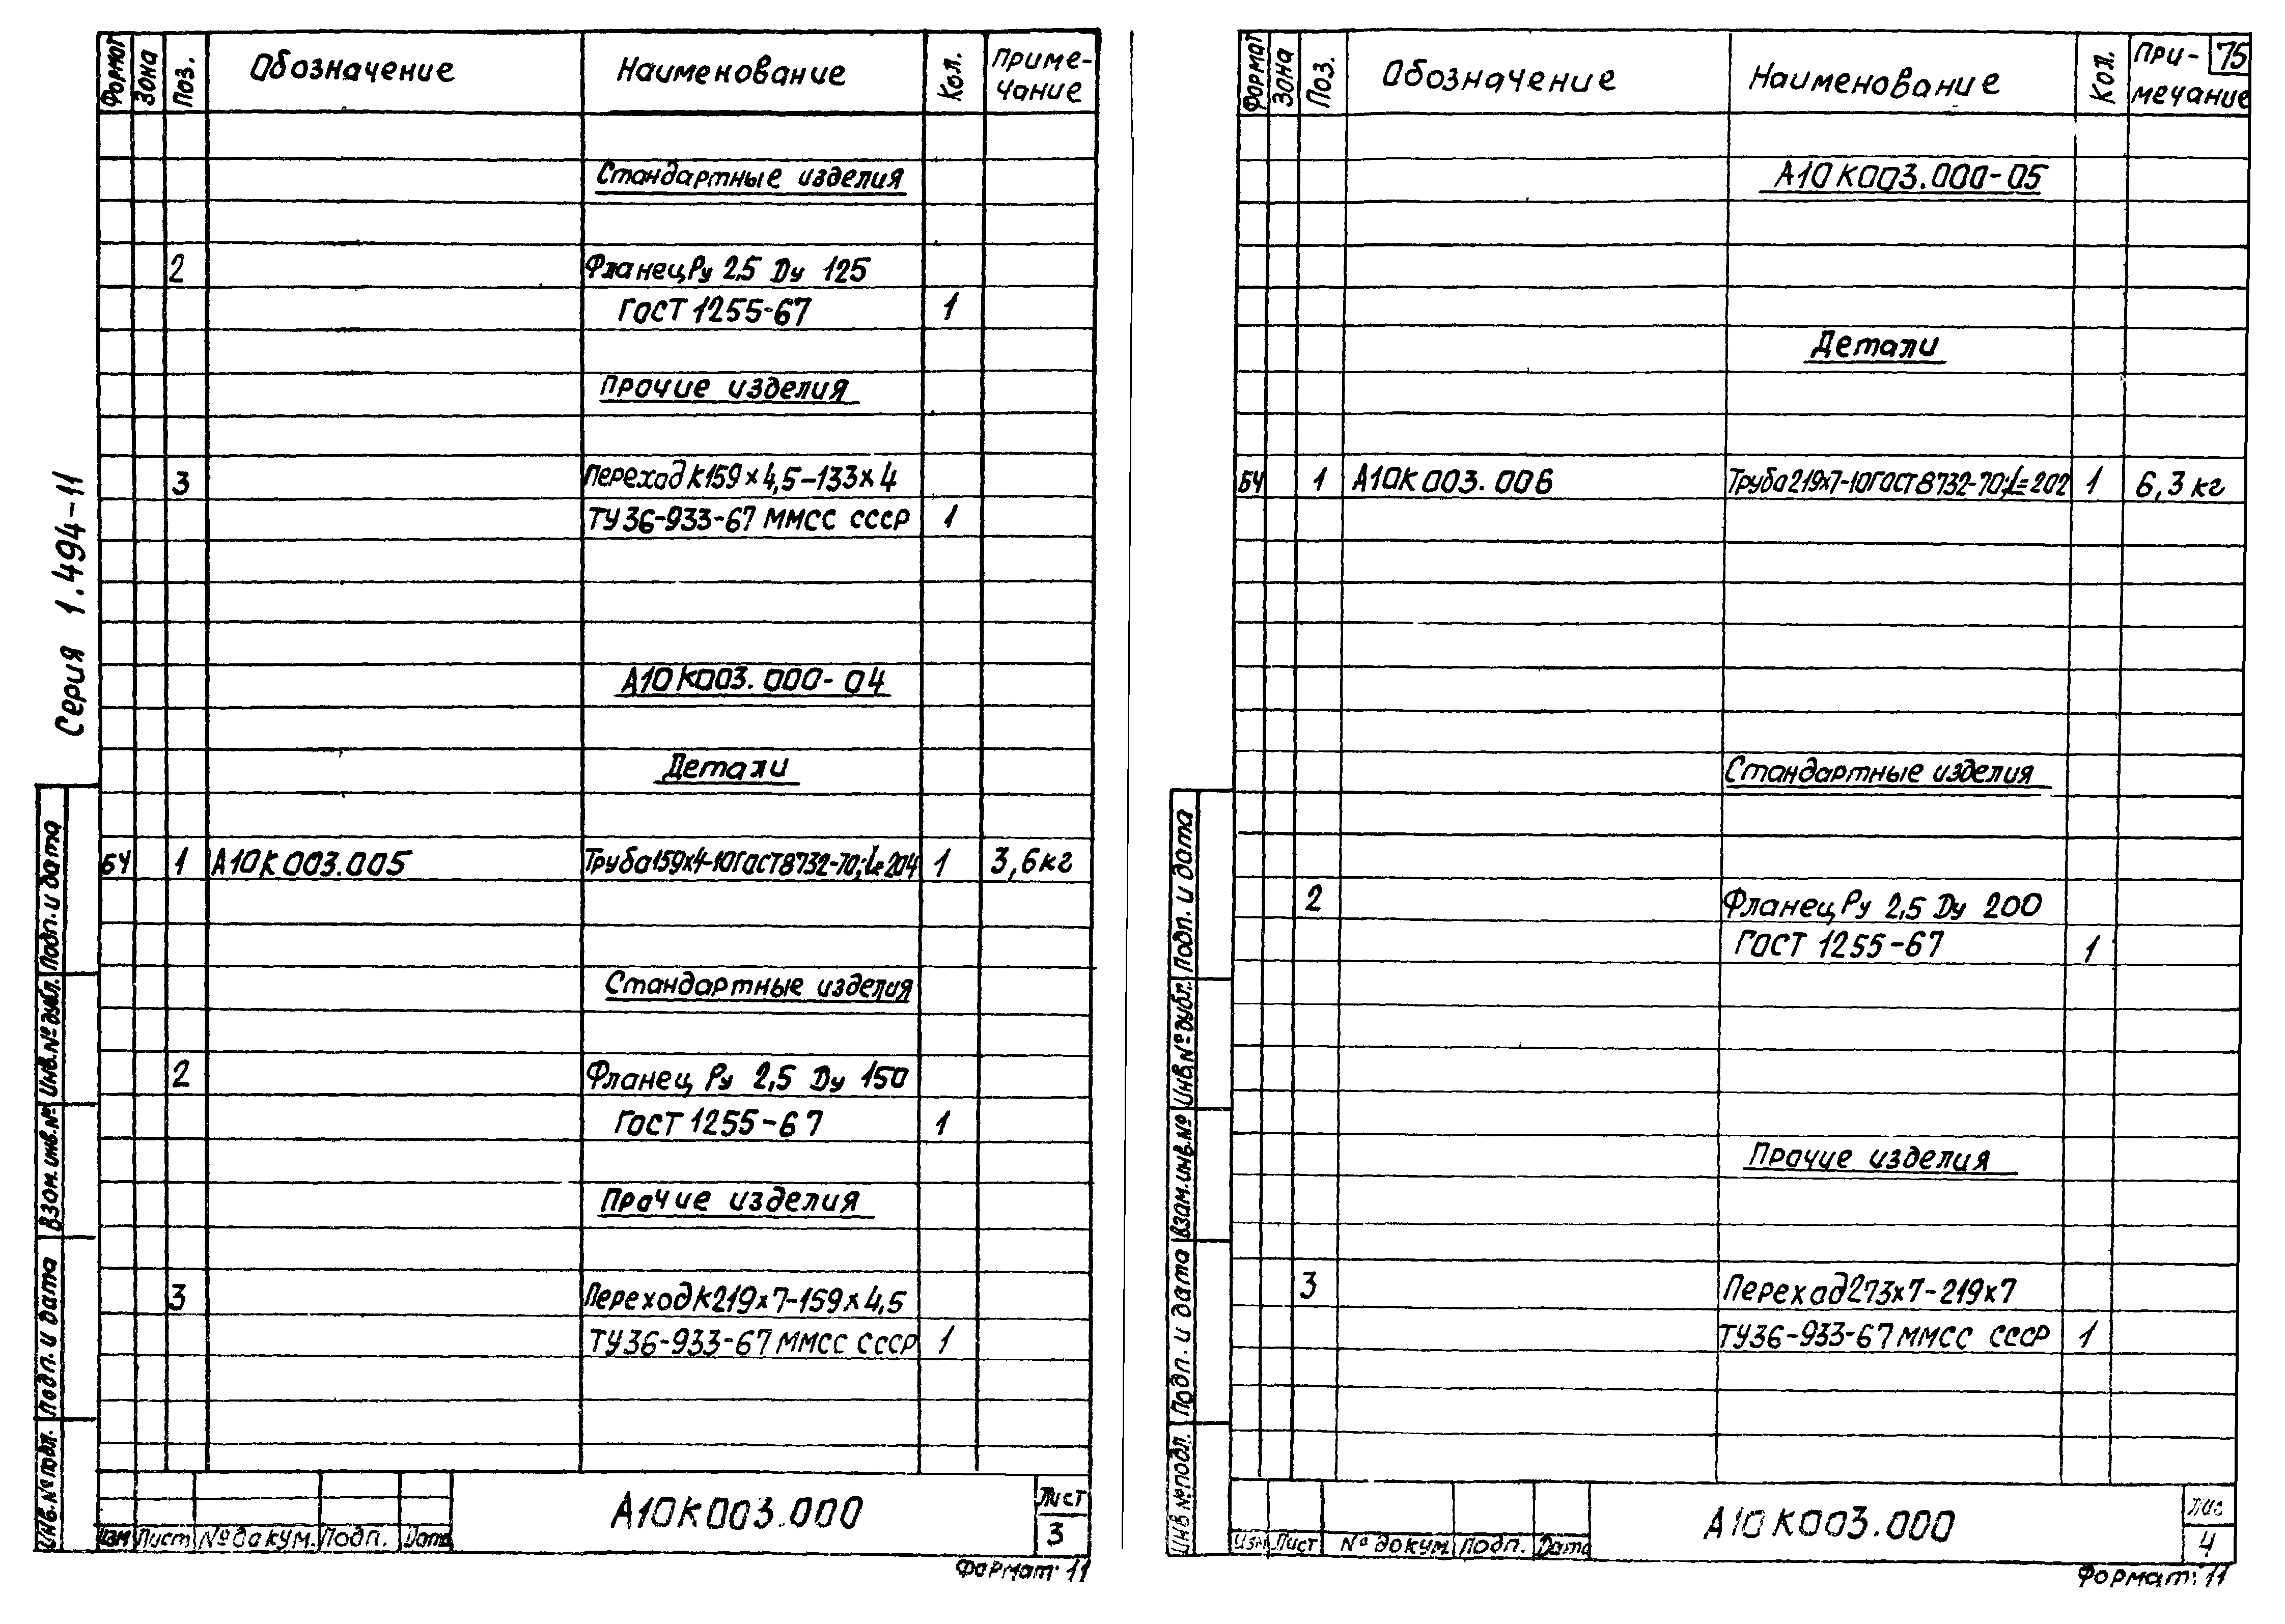 Серия 1.494-11
Формат Зона Поз. Обозначение Наименование Кол. Приме-
чание
Стандартные изделия
2 Фланец Ру 2,5 Dу 125
ГОСТ 1255-67 1
Прочие изделия
3 Переход К159×4,5-133×4
ТУ36-933-67 ММСС СССР 1
А10К003.000-04
Детали
БЧ 1 А10К003.005 Труба159х4-10ГОСТ8732-70;L=204 1 3,6кг
Стандартные изделия
2 Фланец Ру 2,5 Dу 150
ГОСТ 1255-67 1
Прочие изделия
3 Переход К219×7-159×4,5
ТУ36-933-67 ММСС СССР 1
Инв.№подл. Подп. и дата Взам. инв.№ Инв.№дубл. Подп. и дата
Изм Лист № докум. Подп. Дата
А10К003.000
Лист
3
Формат: 11
Формат Зона Поз. Обозначение Наименование Кол. При-
мечание
75
А10К003.000-05
Детали
БЧ 1 А10К003.006 Труба219х7-10ГОСТ8732-70;L=202 1 6,3кг
Стандартные изделия
2 Фланец Ру 2,5 Dу 200
ГОСТ 1255-67 1
Прочие изделия
3 Переход 273х7-219х7
ТУ36-933-67 ММСС СССР 1
Инв.№подл. Подп. и дата Взам.инв.№ Инв.№дубл. Подп. и дата
Изм Лист № докум Подп. Дата
А10К003.000
Лис
4
Формат: 11